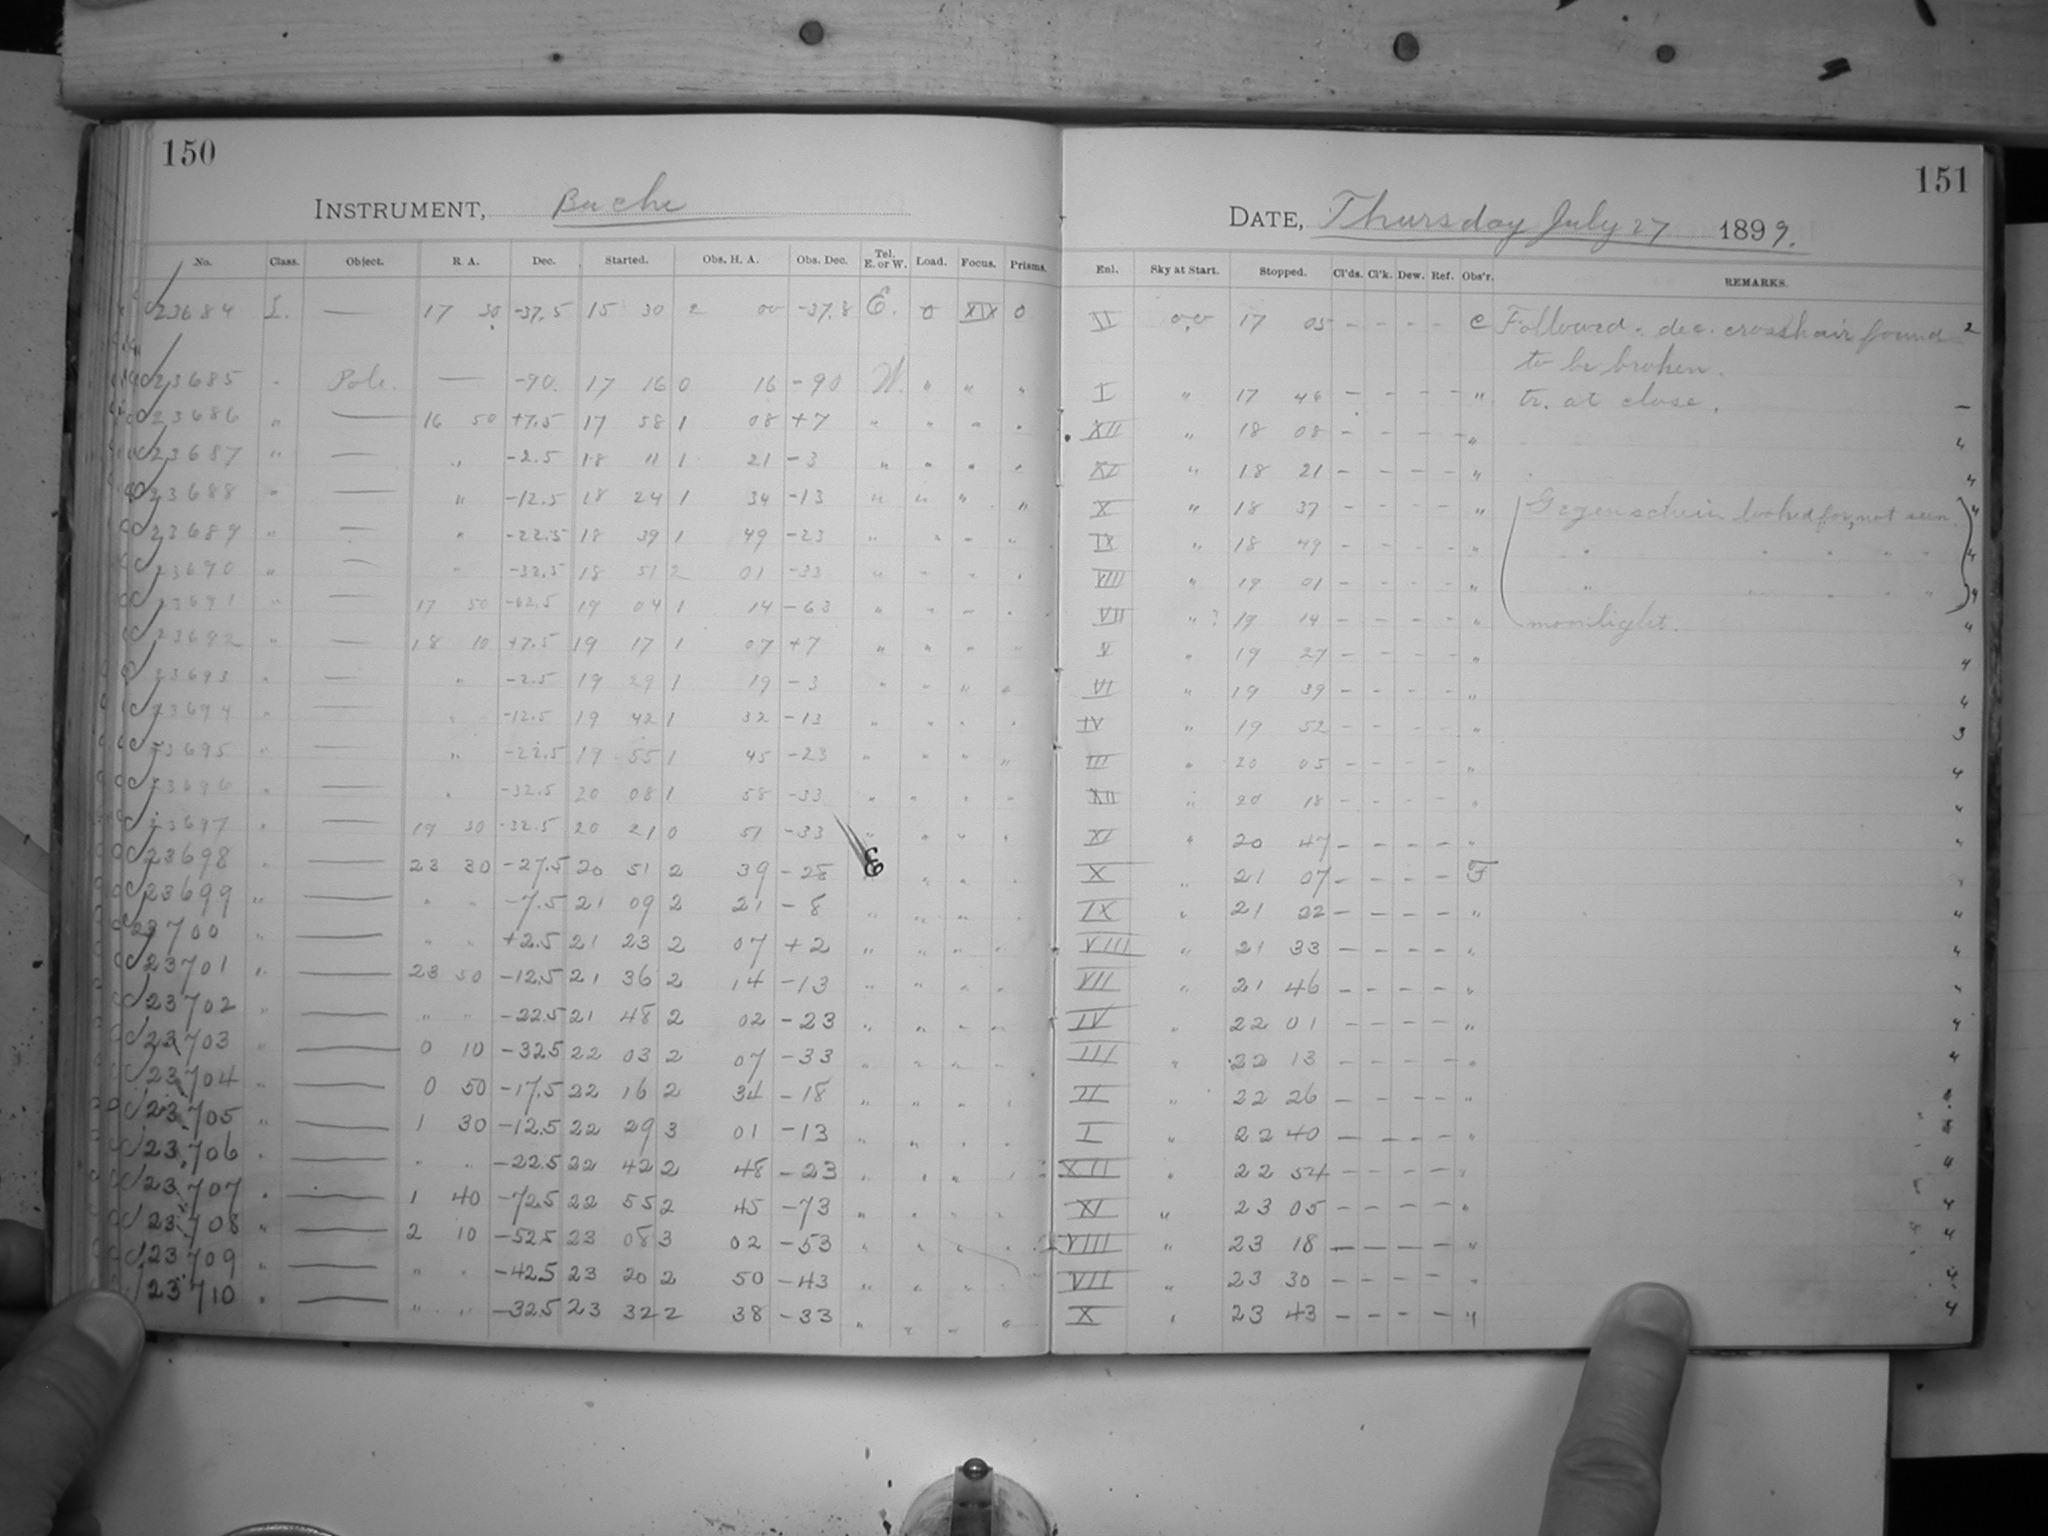 150
INSTRUMENT, Bache
No. Class. Object. R. A. Dec. Started. Obs. H. A. Obs. Dec. Tel. E. or W. Load. Focus. Prisms.
C23684 I. — 17 30 -37.5 15 30 2 00 -37.8 E. 0 XIX 0
C23685 " Pole. — -90. 17 16 0 16 -90 W. " " "
C23686 " — 16 50 +7.5 17 58 1 08 +7 " " " "
C23687 " — " -2.5 18 11 1 21 -3 " " " "
C23688 " — " -12.5 18 24 1 34 -13 " " " "
C23689 " — " -22.5 18 39 1 49 -23 " " " "
C23690 " — " -32.5 18 51 2 01 -33 " " " "
C23691 " — 17 50 -62.5 19 04 1 14 -63 " " " "
C23692 " — 18 10 +7.5 19 17 1 07 +7 " " " "
C23693 " — " -2.5 19 29 1 19 -3 " " " "
C23694 " — " -12.5 19 42 1 32 -13 " " " "
C23695 " — " -22.5 19 55 1 45 -23 " " " "
C23696 " — " -32.5 20 08 1 58 -33 " " " "
C23697 " — 19 30 -32.5 20 21 0 51 -33 " " " "
C23698 " — 23 30 -27.5 20 51 2 39 -28 E " " "
C23699 " — " " -7.5 21 09 2 21 -8 " " " "
C23700 " — " " +2.5 21 23 2 07 +2 " " " "
C23701 " — 23 50 -12.5 21 36 2 14 -13 " " " "
C23702 " — " " -22.5 21 48 2 02 -23 " " " "
C23703 " — 0 10 -32.5 22 03 2 07 -33 " " " "
C23704 " — 0 50 -17.5 22 16 2 34 -18 " " " "
C23705 " — 1 30 -12.5 22 29 3 01 -13 " " " "
C23706 " — " " -22.5 22 42 2 48 -23 " " " "
C23707 " — 1 40 -72.5 22 55 2 45 -73 " " " "
C23708 " — 2 10 -52.5 23 08 3 02 -53 " " " "
C23709 " — " " -42.5 23 20 2 50 -43 " " " "
23710 " — " " -32.5 23 32 2 38 -33 " " " "
151
DATE, Thursday July 27 1899.
Enl. Sky at Start. Stopped. Cl'ds. Cl'k. Dew. Ref. Obs'r. REMARKS.
II 0,0 17 05 - - - - C Followed. dec. crosshair found 2
to be broken.
I " 17 46 - - - - " tr. at close. —
XII " 18 08 - - - - " 4
XI " 18 21 - - - - " 4
X " 18 37 - - - - " Gegenschein looked for, not seen. 4
IX " 18 49 - - - - " " " " " " 4
VIII " 19 01 - - - - " " " " " " 4
VII "? 19 14 - - - - " moonlight. 4
V " 19 27 - - - - " 4
VI " 19 39 - - - - " 4
IV " 19 52 - - - - " 3
III " 20 05 - - - - " 4
XII " 20 18 - - - - " "
XI " 20 47 - - - - " "
X " 21 07 - - - - F "
IX " 21 22 - - - - " "
VIII " 21 33 - - - - " "
VII " 21 46 - - - - " "
IV " 22 01 - - - - " 4
III " 22 13 - - - - " 4
II " 22 26 - - - - "
I " 22 40 - - - - "
XII " 22 54 - - - - " 4
XI " 23 05 - - - - " 4
VIII " 23 18 - - - - " 4
VII " 23 30 - - - - " 4
X " 23 43 - - - - " 4